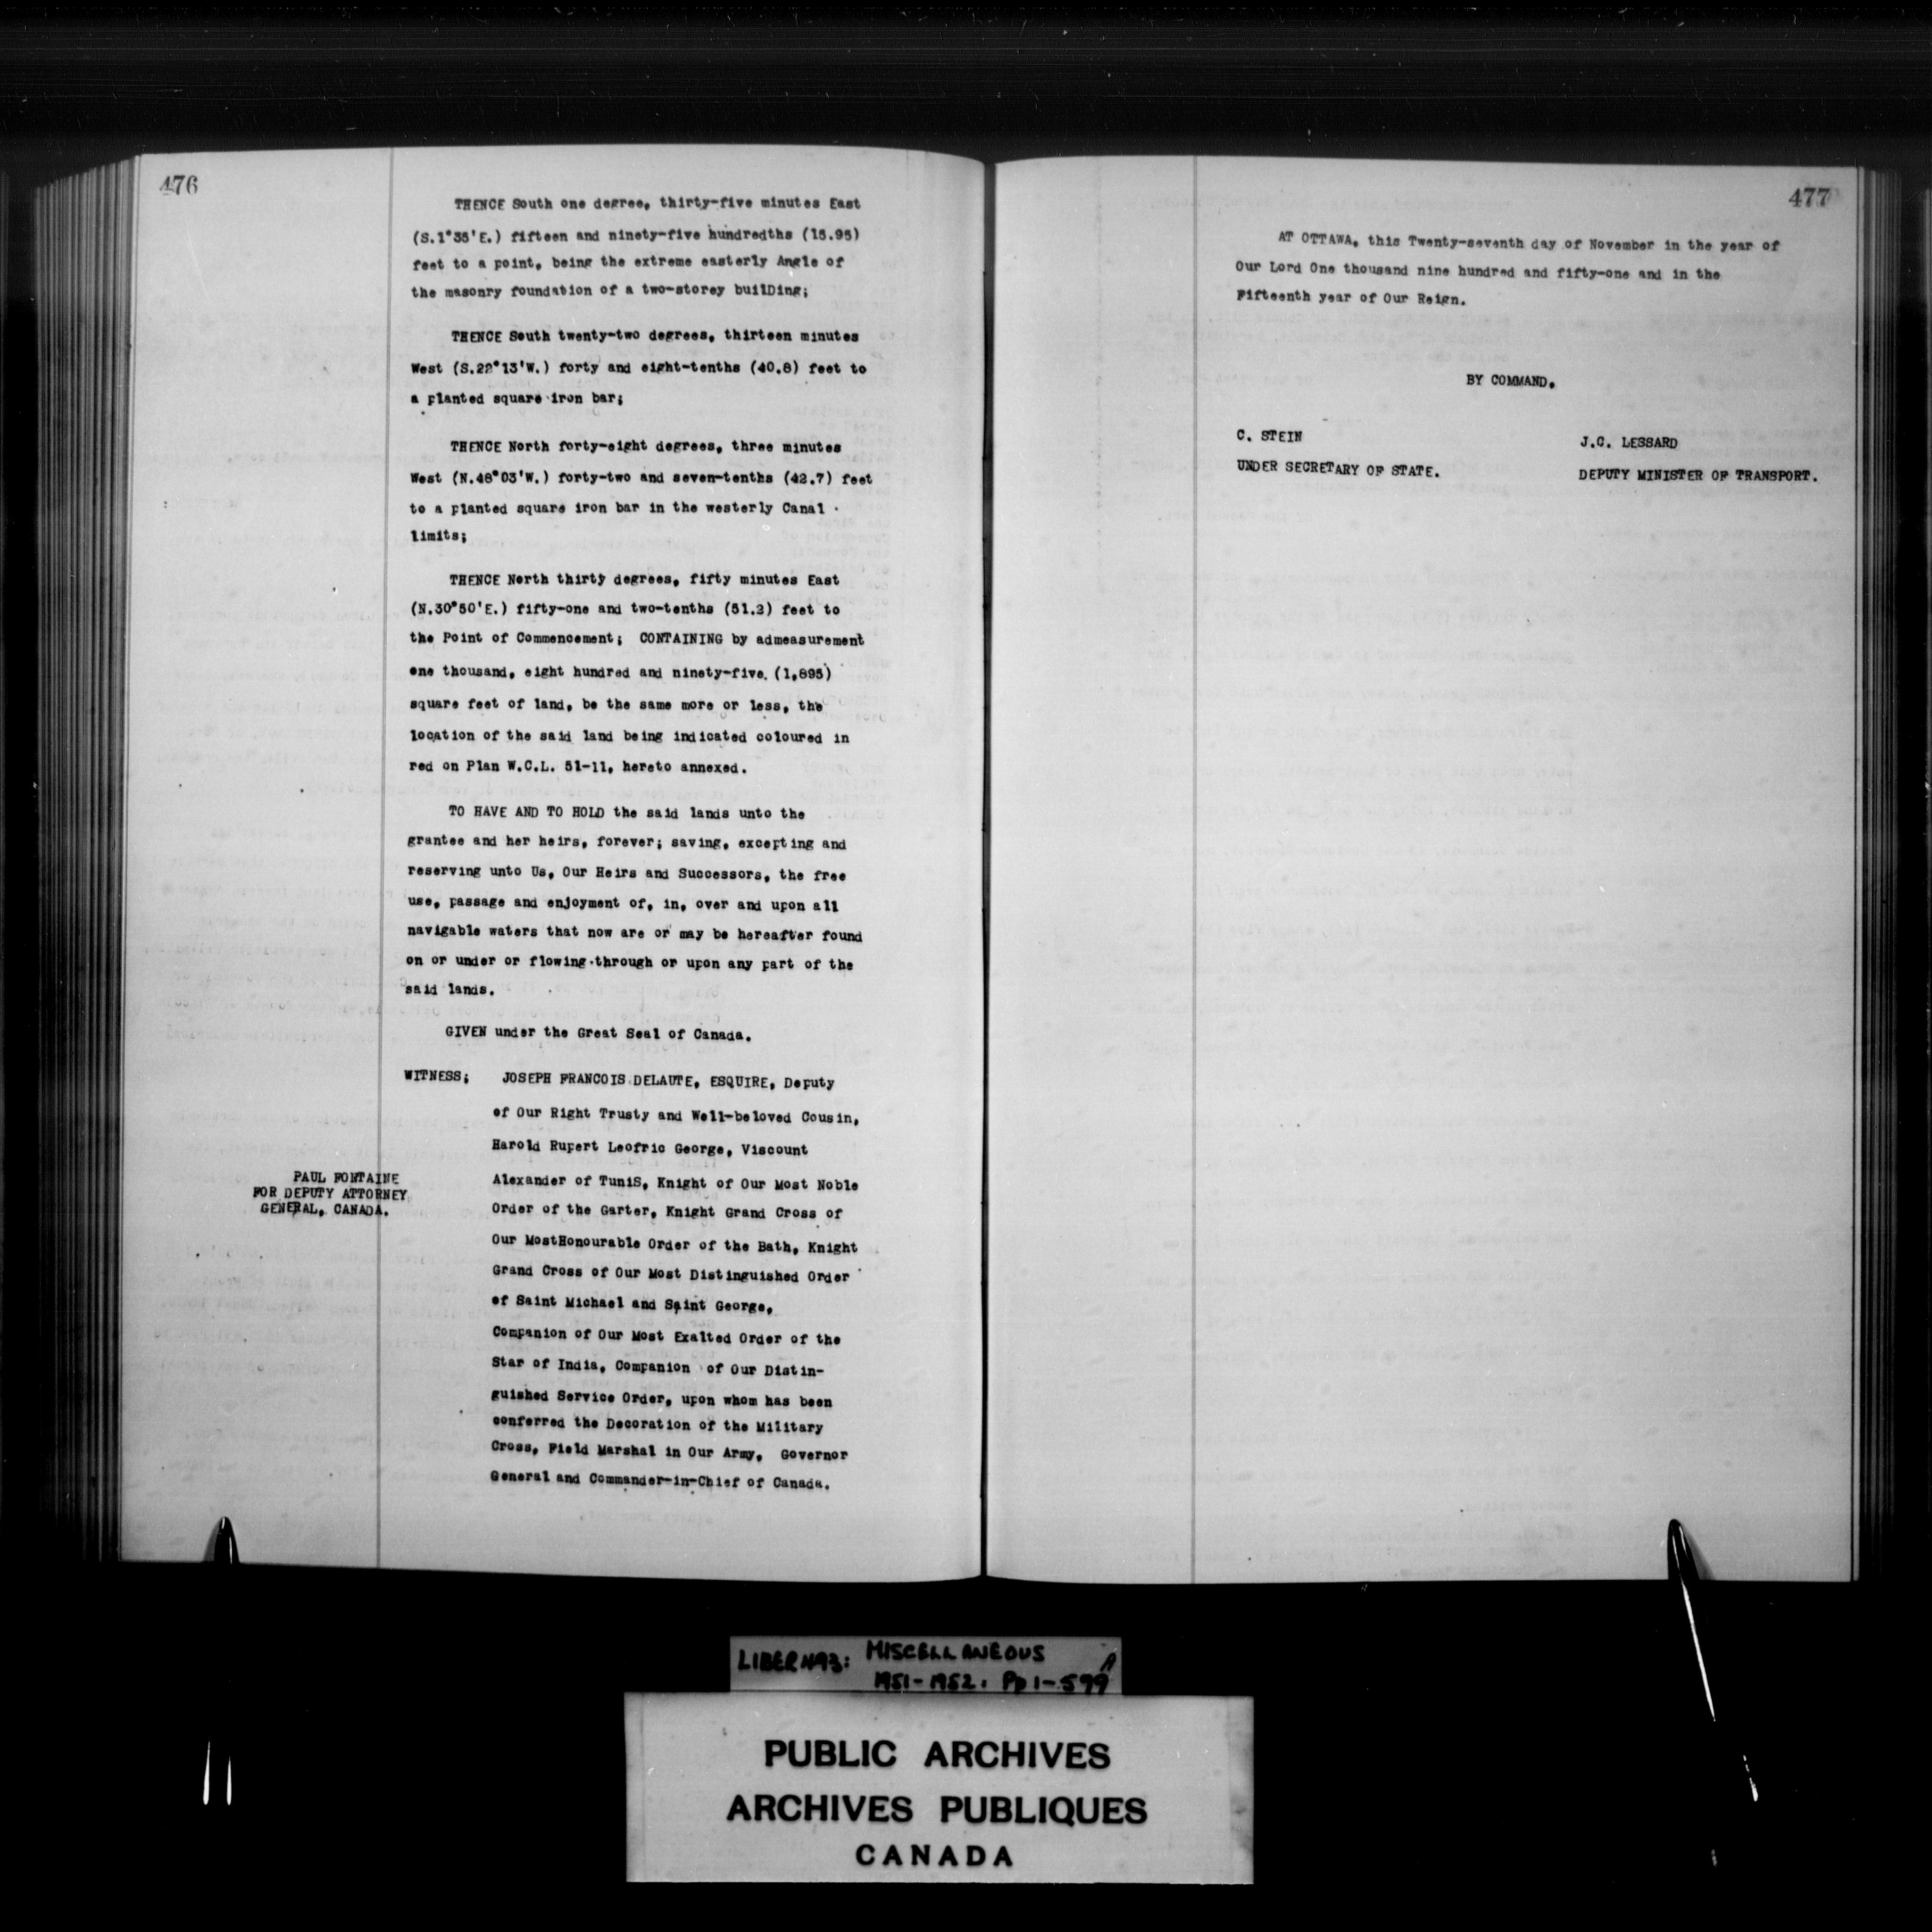 476
THENCE South one degree, thirty-five minutes East
(S.1°35'E.) fifteen and ninety-five hundredths (15.95)
feet to a point, being the extreme easterly Angle of
the masonry foundation of a two-storey builDing;
THENCE South twenty-two degrees, thirteen minutes
West (S.22°13'W.) forty and eight-tenths (40.8) feet to
a planted square iron bar;
THENCE North forty-eight degrees, three minutes
West (N.48°03'W.) forty-two and seven-tenths (42.7) feet
to a planted square iron bar in the westerly Canal
limits;
THENCE North thirty degrees, fifty minutes East
(N.30°50'E.) fifty-one and two-tenths (51.2) feet to
the Point of Commencement; CONTAINING by admeasurement
one thousand, eight hundred and ninety-five. (1,895)
square feet of land, be the same more or less, the
location of the said land being indicated coloured in
red on Plan W.C.L. 51-11, hereto annexed.
TO HAVE AND TO HOLD the said lands unto the
grantee and her heirs, forever; saving, excepting and
reserving unto Us, Our Heirs and Successors, the free
use, passage and enjoyment of, in, over and upon all
navigable waters that now are or may be hereafter found
on or under or flowing through or upon any part of the
said lands.
GIVEN under the Great Seal of Canada.
WITNESS; JOSEPH FRANCOIS DELAUTE, ESQUIRE, Deputy
of Our Right Trusty and Well-beloved Cousin,
Harold Rupert Leofric George, Viscount
Alexander of TuniS, Knight of Our Most Noble
Order of the Garter, Knight Grand Cross of
Our MostHonourable Order of the Bath, Knight
Grand Cross of Our Most Distinguished Order
of Saint Michael and Saint George,
Companion of Our Most Exalted Order of the
Star of India, Companion of Our Distin-
guished Service Order, upon whom has been
conferred the Decoration of the Military
Cross, Field Marshal in Our Army, Governor
General and Commander-in-Chief of Canada.
PAUL FONTAINE
FOR DEPUTY ATTORNEY
GENERAL, CANADA.
477
AT OTTAWA, this Twenty-seventh day of November in the year of
Our Lord One thousand nine hundred and fifty-one and in the
Fifteenth year of Our Reign.
BY COMMAND.
C. STEIN
UNDER SECRETARY OF STATE.
J.C. LESSARD
DEPUTY MINISTER OF TRANSPORT.
LIBER 493: MISCELLANEOUS
1951-1952. Pp 1-599 A
PUBLIC ARCHIVES
ARCHIVES PUBLIQUES
CANADA